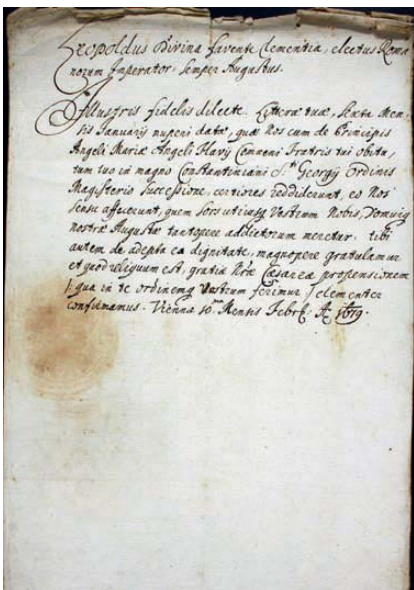 Leopoldus Divina favente Clementia, electus Roma
norum Imperator, semper Augustus.
Illustris fidelis dilecte. Litteræ tuæ, sexta Men-
sis Januarij nuperi datæ, quæ Nos cum de Principis
Angeli Mariæ Angeli Flavij Comneni Fratris tui obitu,
tum tuo in magno Constantiniani S.ti Georgij Ordinis
Magisterio successione, certiores reddiderunt, eo Nos
sensu affecerunt, quem sors utriusq Vestrum Nobis, Domuiq
nostræ Augustæ tantopere addictorum meretur. tibi
autem de adepta ea dignitate, magnopere gratulamur
et quod reliquum est, gratiæ Nræ Cæsareæ propensionem
/: qua in te ordinemq Vestrum ferimur :/ clementer
confirmamus. Vienna 10.ma Mensis Febr: Ao 1679.